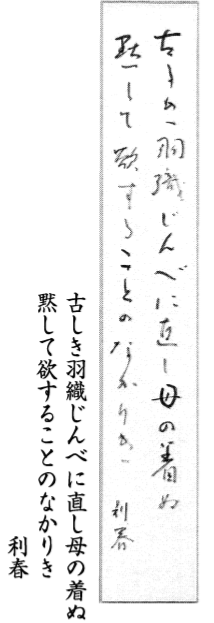 古しき羽織じんべに直し母の着ぬ
黙して欲することのなかりき
利春
古しき羽織じんべに直し母の着ぬ
黙して欲することのなかりき
利春